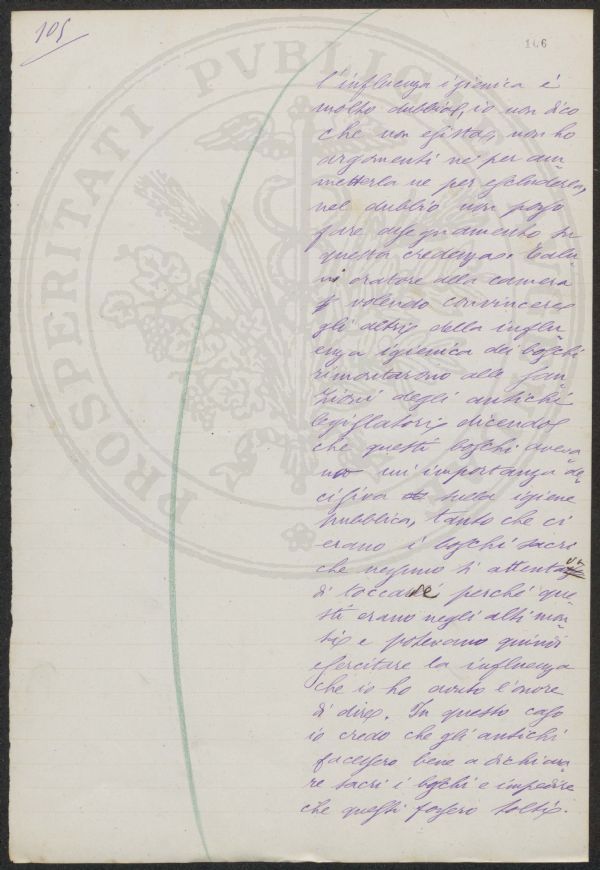 105
146
l'influenza igienica è
molto dubbia, io non dico
che non esista, non ho
argomenti né per am
metterla né per escluderla,
nel dubbio non posso
fare assegnamento su
questa credenza. Talu
ni oratori della camera
volendo convincere
gli altri della influ
enza igienica dei boschi
rimontarono alle san
zioni degli antichi
legislatori dicendo
che questi boschi aveva
no un'importanza de
cisiva nella igiene
pubblica, tanto che ci
erano i boschi sacri
che nessuno si attentava
di toccare perché que
sti erano negli alti mon
ti e potevano quindi
esercitare la influenza
che io ho avuto l'onore
di dire. In questo caso
io credo che gli antichi
facessero bene a dichiara
re sacri i boschi e impedire
che questi fossero tolti.
PROSPERITATI PUBLICAE